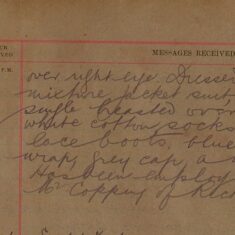 UR
MESSAGES RECEIVED
P.M.
over right eye Dressed
mixture jacket suit,
single breasted over
white cotton socks
lace boots, blue
wrap, grey cap, a
Has been employ
Mr Copping of